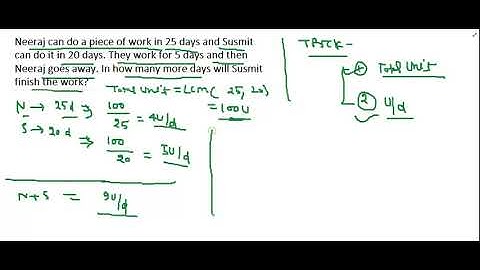 Neeraj can do a piece of work in 25 days and Susmit
can do it in 20 days. They work for 5 days and then
Neeraj goes away. In how many more days will Susmit
finish the work?
Total unit = LCM ( 25, 20)
= 100U
N → 25d ⇒ 100/25 = 4U/d
S → 20d ⇒ 100/20 = 5U/d
N+S = 9U/d
TRICK -
Total Unit
② U/d